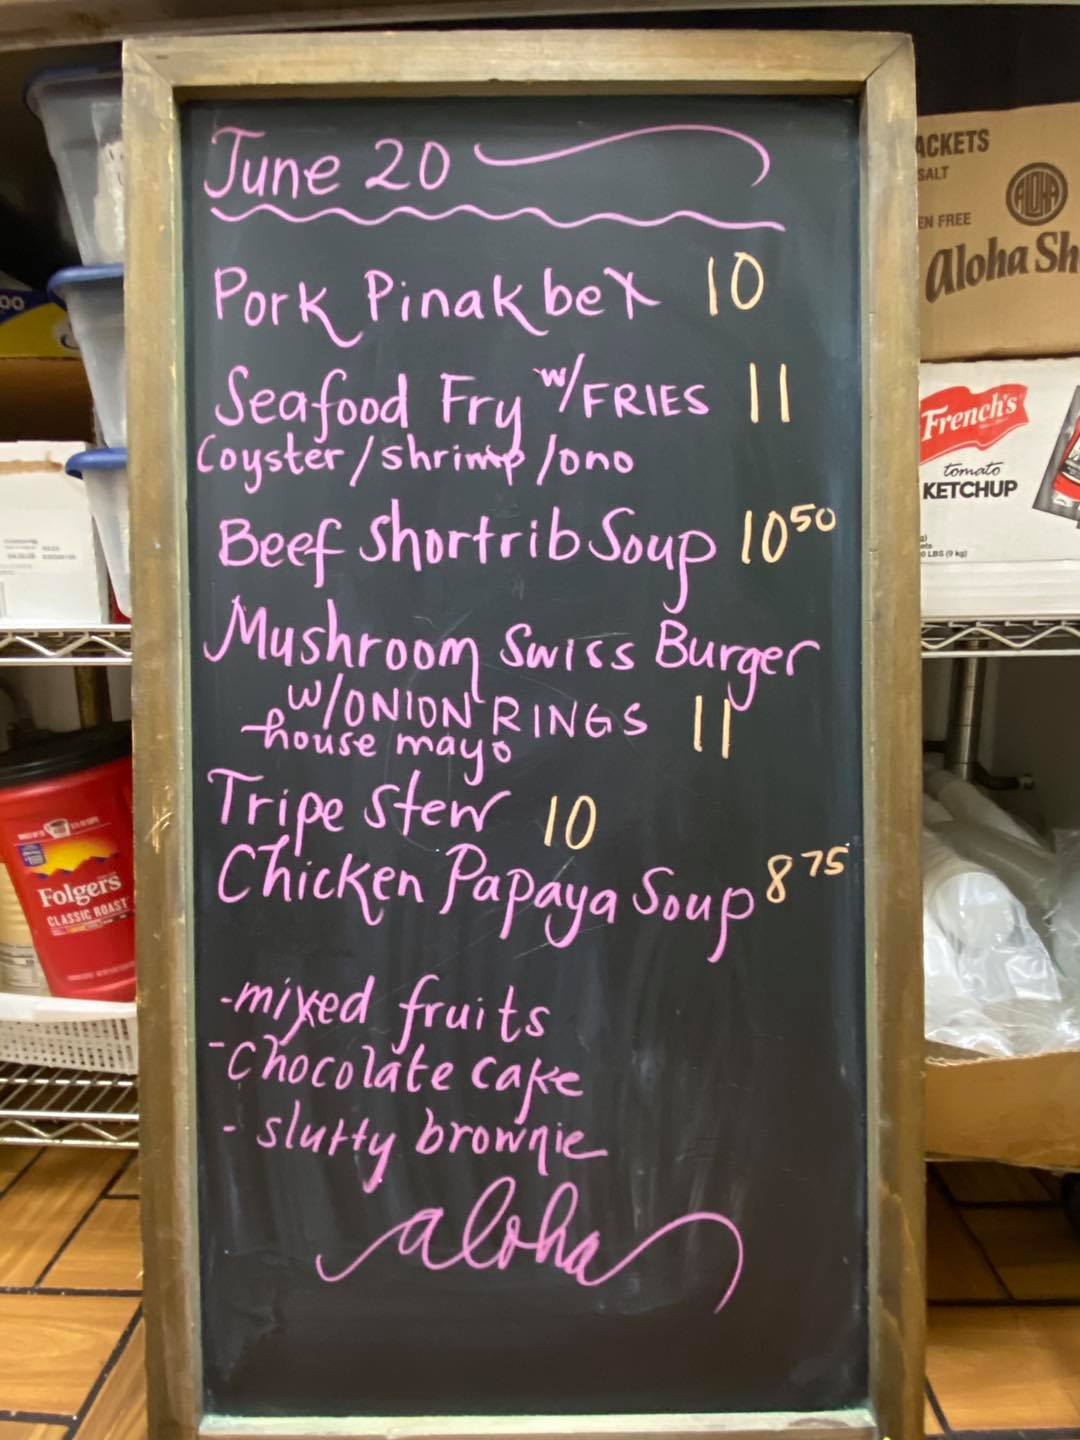 June 20
Pork Pinakbet 10
Seafood Fry w/FRIES 11
(oyster/shrimp/ono
Beef Shortrib Soup 10 50
Mushroom Swiss Burger
w/ONION RINGS 11
-house mayo
Tripe Stew 10
Chicken Papaya Soup 8 75
-mixed fruits
-Chocolate cake
- slutty brownie
aloha
ACKETS
SALT
EN FREE
ALOHA
Aloha Sh
French's
tomato
KETCHUP
0 LBS (9 kg)
Folgers
CLASSIC ROAST